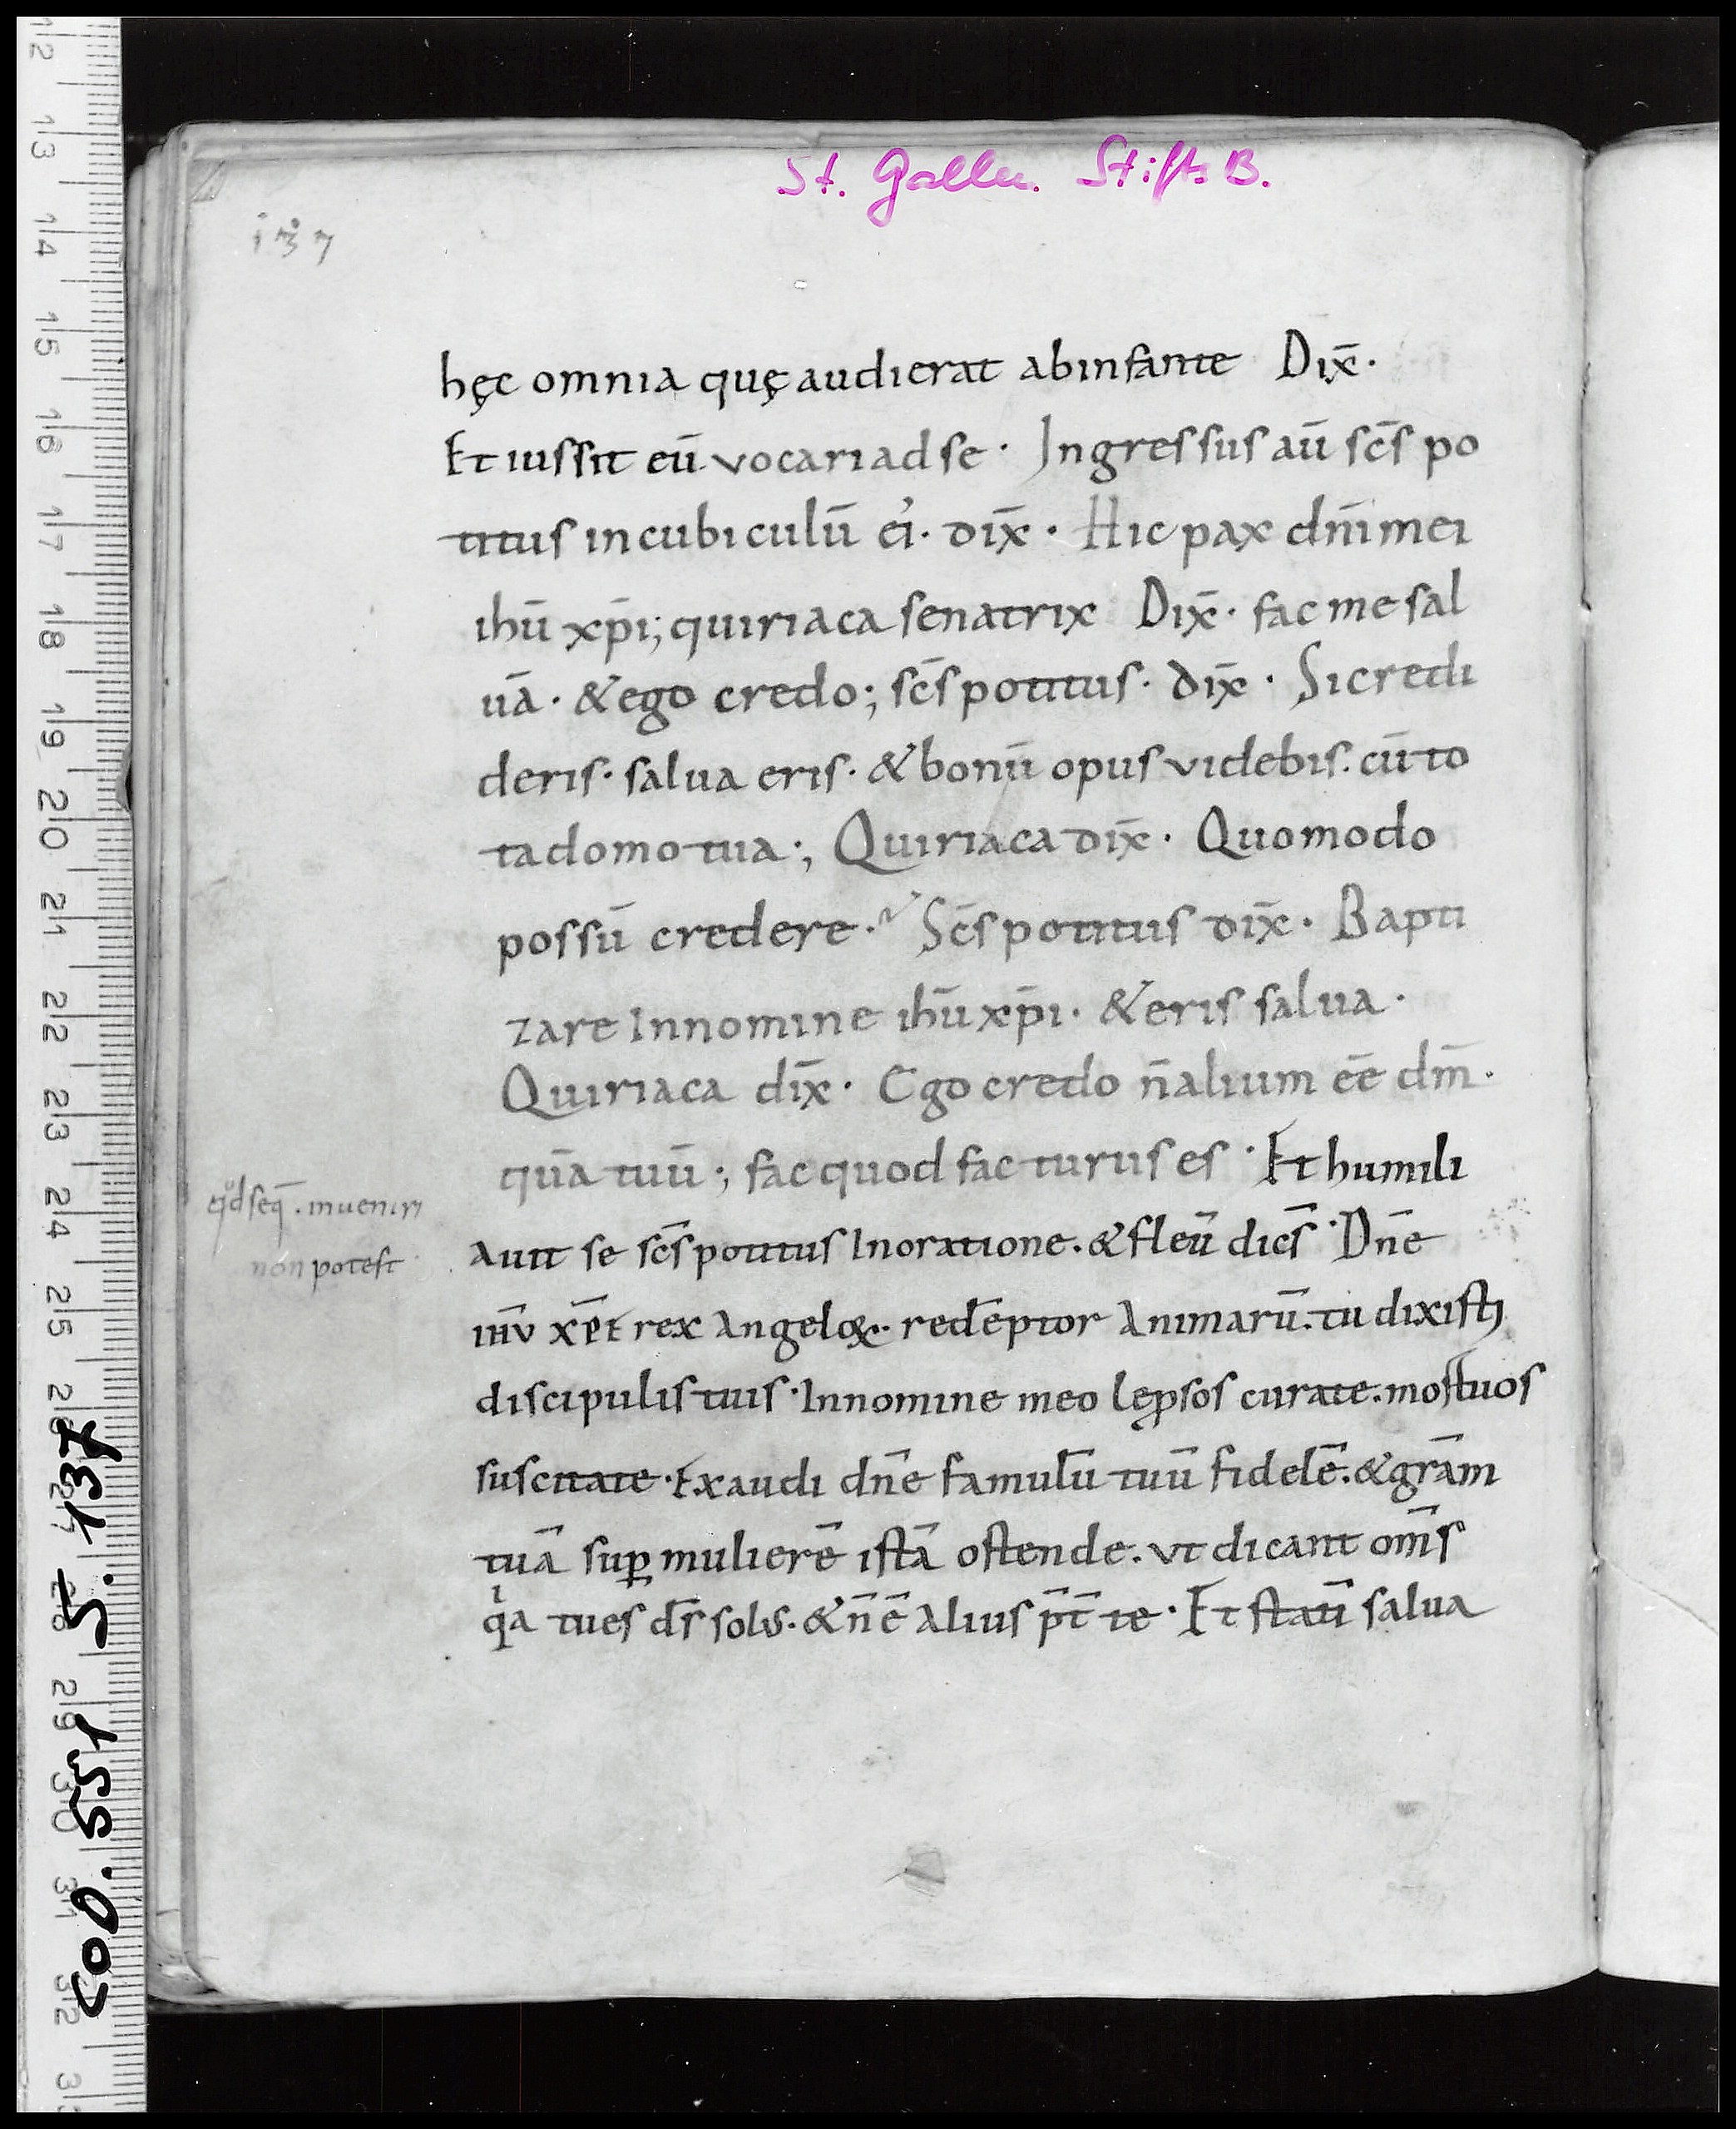 St. Gallen. Stifts B.
137
hęc omnia quę audierat ab infante Dix̄.
Et iussit eū vocari ad se. Ingressus aū sc̄s po
titus in cubiculū ei᾽. dix̄. Hic pax dn̄i mei
ihū xp̄i; quiriaca senatrix Dix̄. fac me sal
uā. & ego credo; sc̄s potitus. dix̄. Si credi
deris. salua eris. & bonū opus videbis. cū to
ta domo tua; Quiriaca dix̄. Quomodo
possū credere. Sc̄s potitus dix̄. Bapti
zare In nomine ihū xp̄i. & eris salua.
Quiriaca dix̄. Ego credo n̄ alium ēe dm̄.
quā tuū; fac quod facturus es. Et humili
qd seq̄. inueniri
non potest
auit se sc̄s potitus In oratione. & fleū dic̄s. Dn̄e
ih̄v xp̄e rex angeloꝝ. redēptor animarū. tu dixisti
discipulis tuis. In nomine meo lep̱sos curate. mortuos
suscitate. Exaudi dn̄e famulū tuū fidelē. & gr̄am
tuā suꝑ mulierē istā ostende. vt dicant om̄s
qia tu es ds̄ solus. & n̄ ē alius p̄t te. Et statī salua
12
13
14
15
16
17
18
19
20
21
22
23
24
25
26
27
28
29
30
31
32
Cod. 551 S. 137